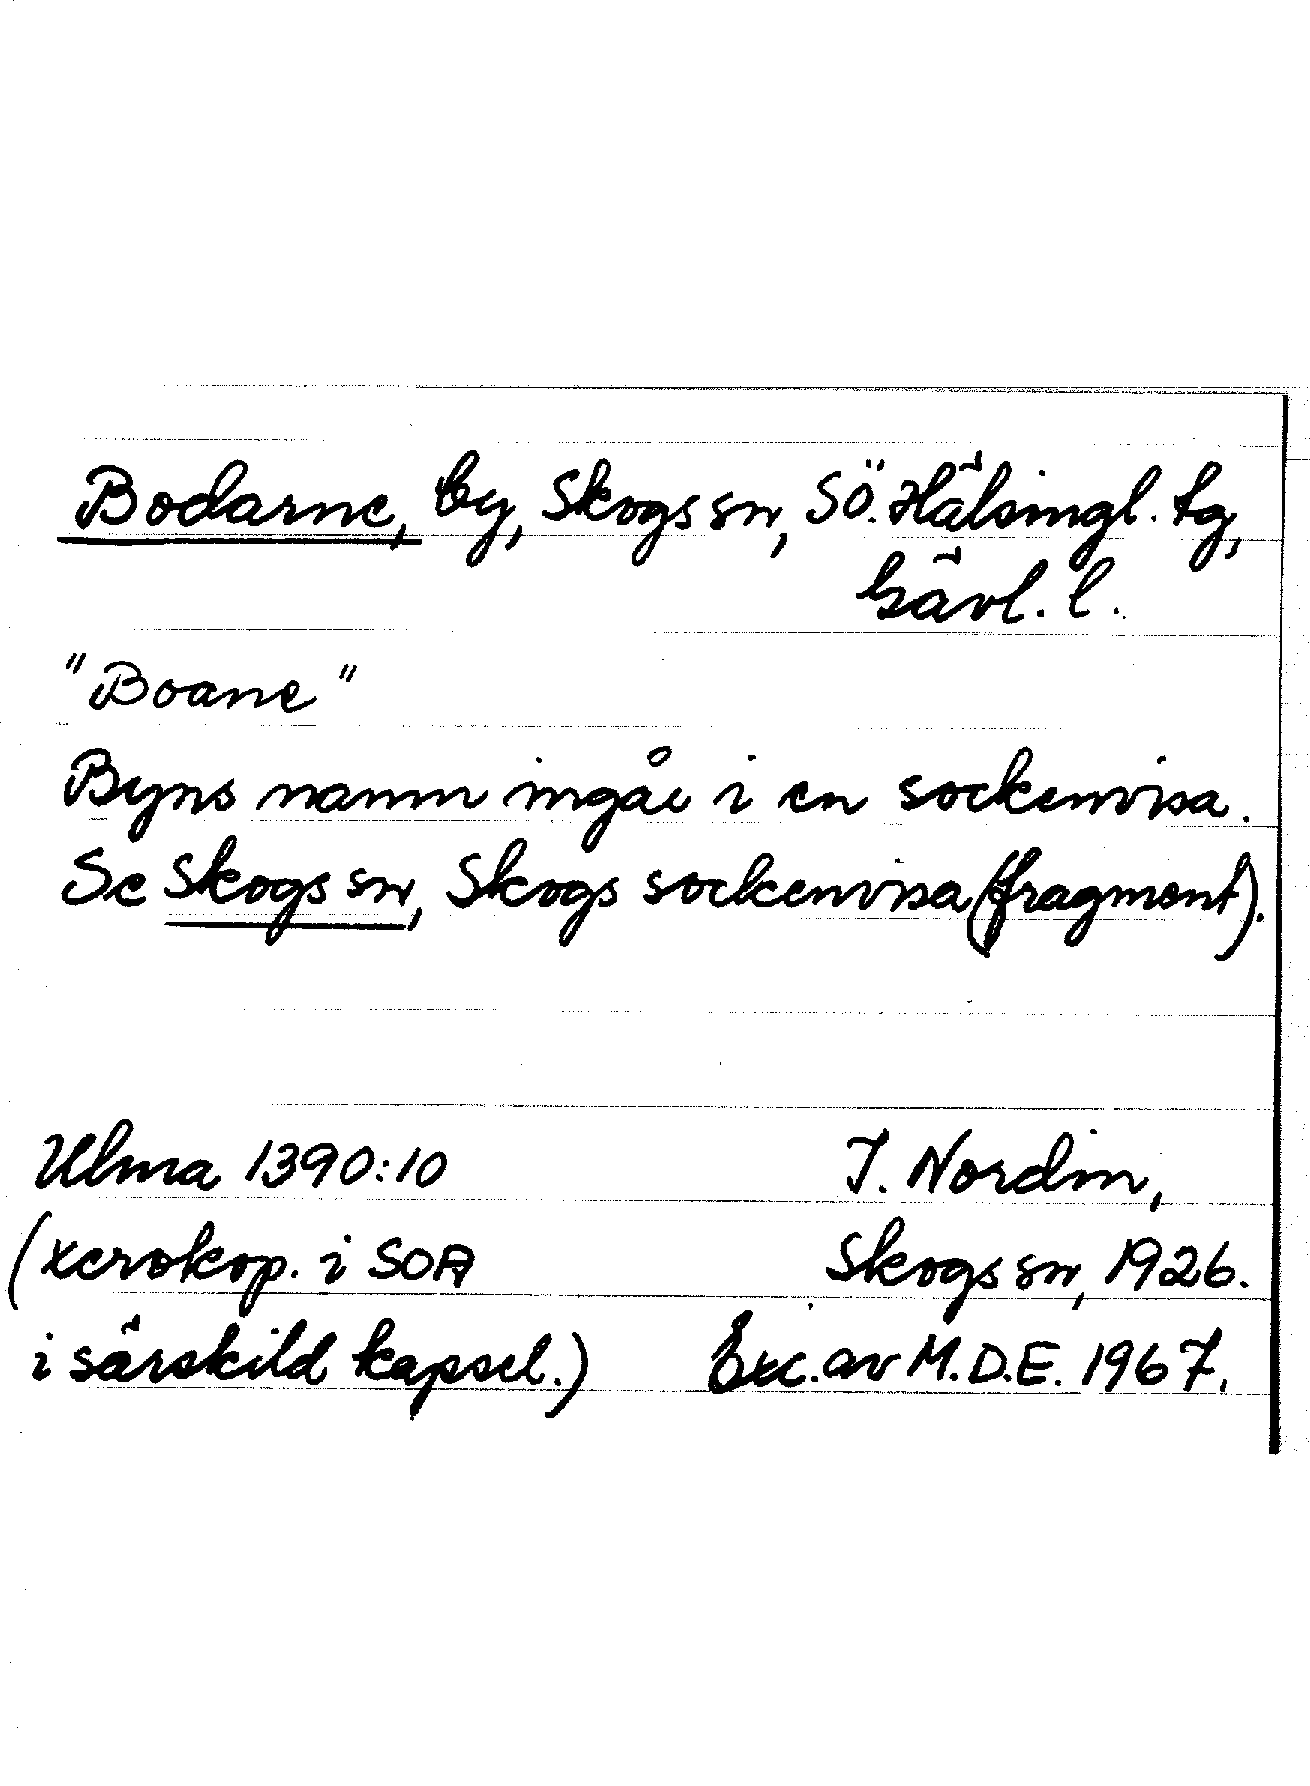 Bodarne, by, Skogs sn, Sö. Hälsingl. tg,
Gävl. l.
"Boane"
Byns namn ingår i en sockenvisa.
Se Skogs sn, Skogs sockenvisa (fragment).
Ulma 1390:10
J. Nordin,
(xerokop. i SOA
Skogs sn, 1926.
i särskild kapsel.)
Exc. av M.D.E. 1967.